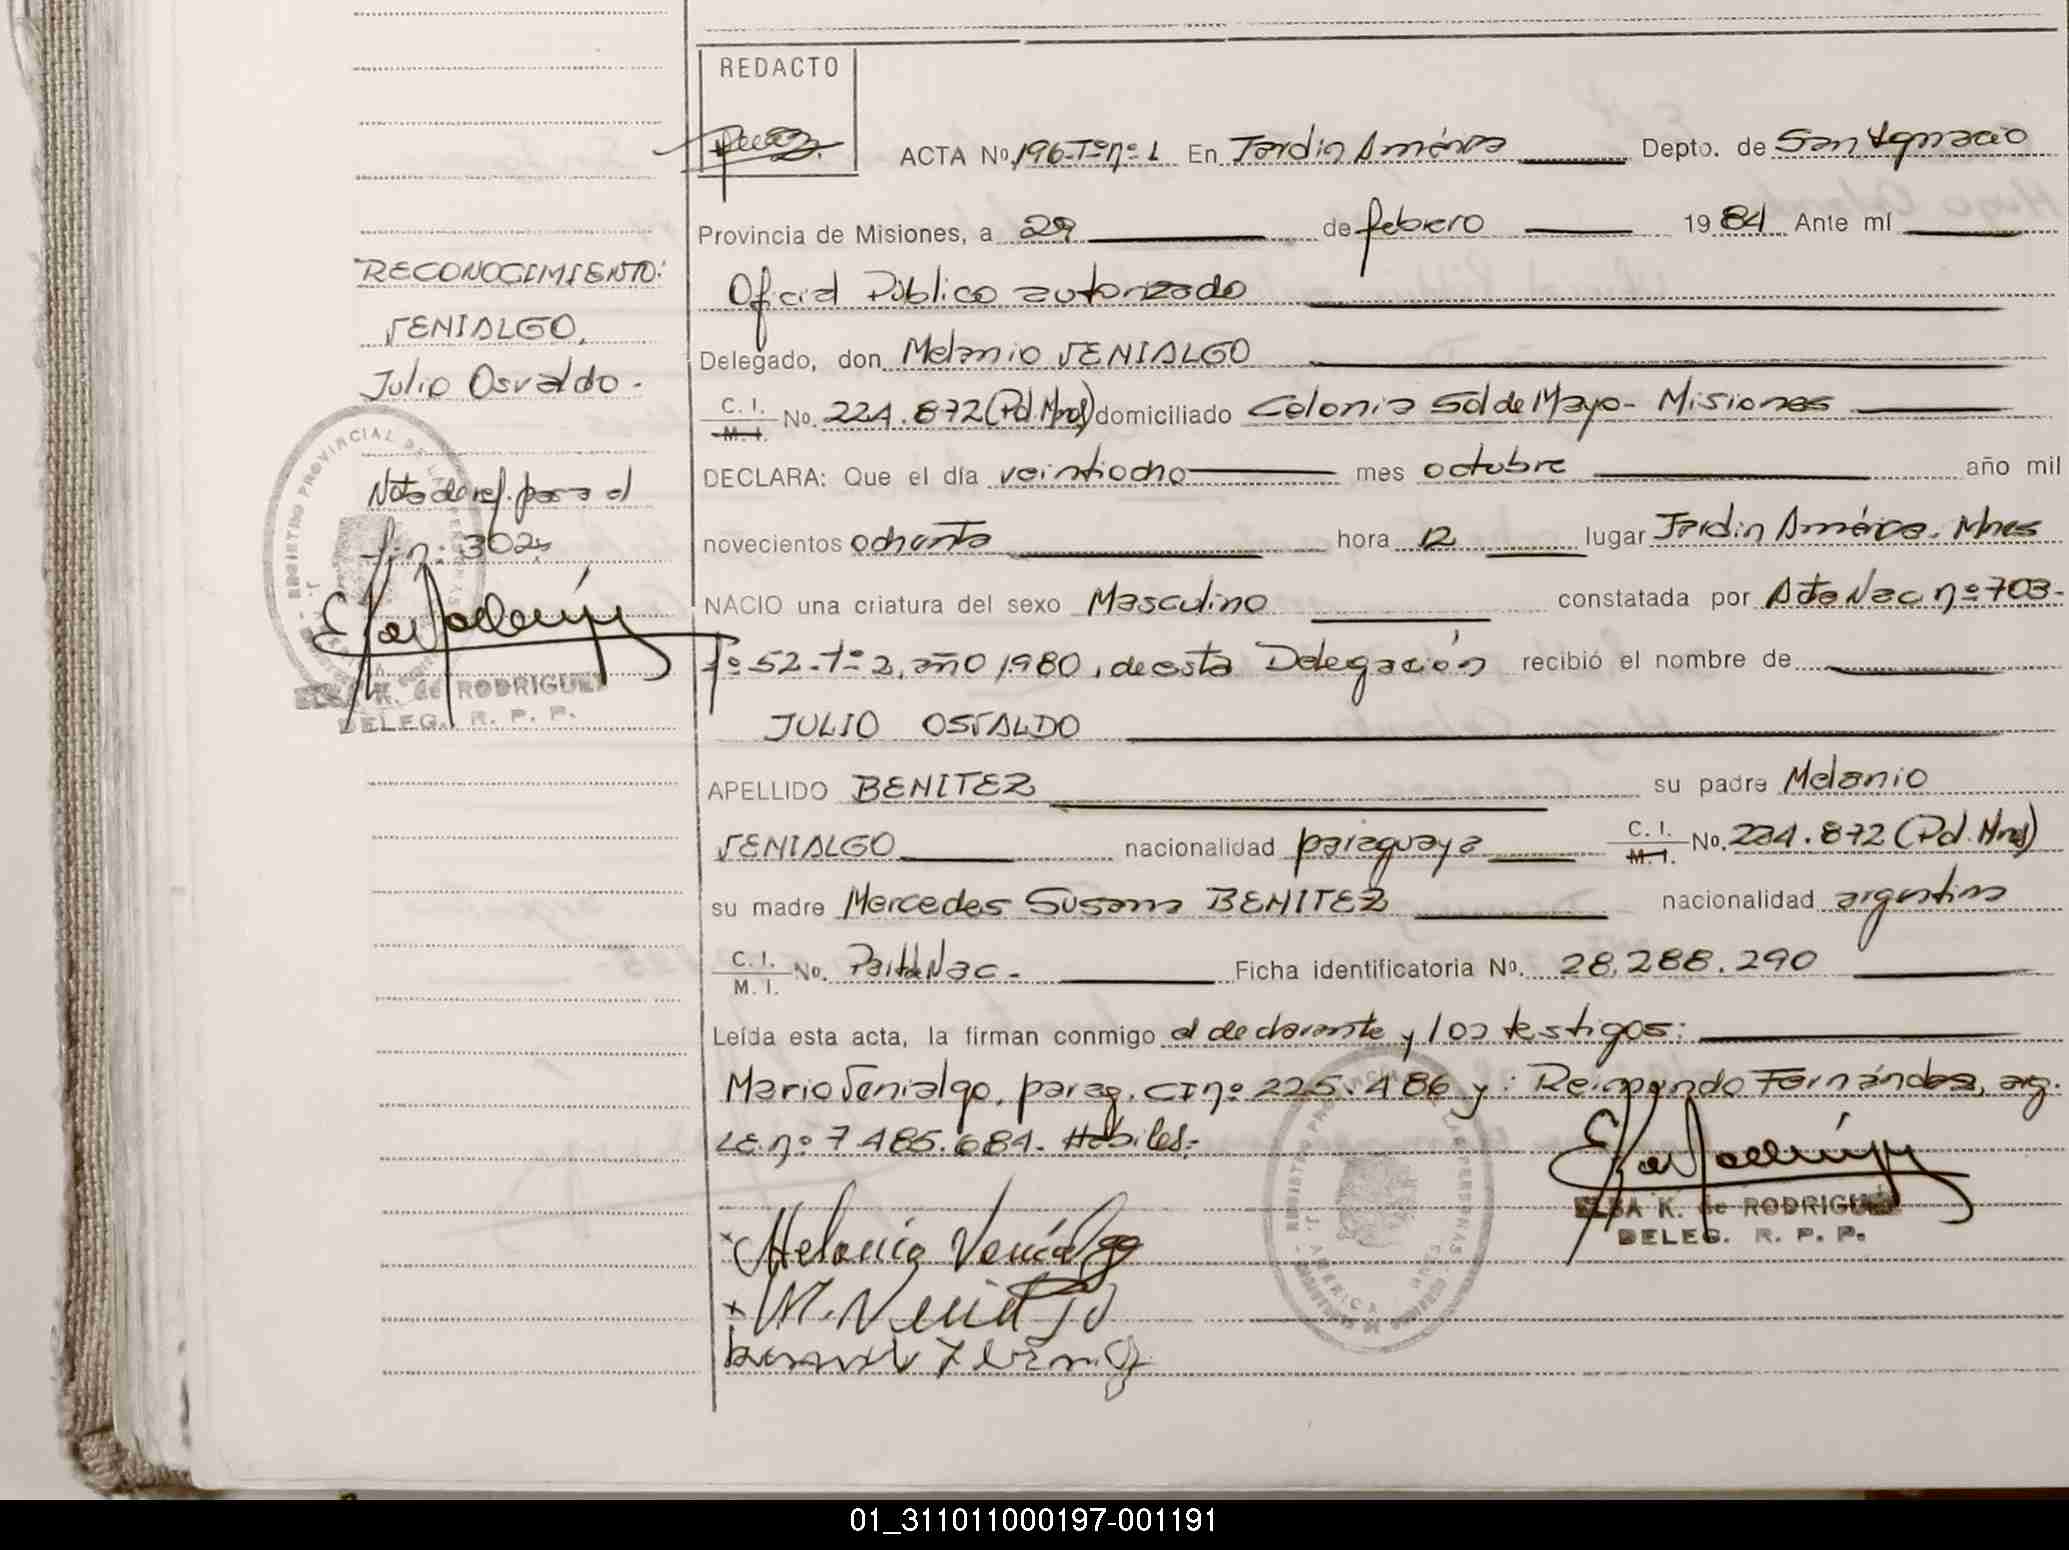 REDACTO
ACTA No. 196-Tº nº 1 En Jardín América Depto. de San Ignacio
Provincia de Misiones, a 29 de febrero 1984 Ante mí
Oficial Público autorizado
Delegado, don Melanio VENIALGO
C. I. No. 224.872 (Pol. Mnes) domiciliado Colonia Sol de Mayo - Misiones
M. I.
DECLARA: Que el día veintiocho mes octubre año mil
novecientos ochenta hora 12 lugar Jardín América. Mnes
NACIO una criatura del sexo Masculino constatada por Acta Nac nº 703-
fº 52-Tº 2, año 1980, de esta Delegación recibió el nombre de
JULIO OSVALDO
APELLIDO BENITEZ su padre Melanio
VENIALGO nacionalidad paraguaya C. I. No. 224.872 (Pol. Mnes)
M. I.
su madre Mercedes Susana BENITEZ nacionalidad argentina
C. I. No. Part de Nac. - Ficha identificatoria No. 28.288.290
M. I.
Leída esta acta, la firman conmigo el declarante y los testigos:
Mario Venialgo, parag. CI nº 225.486 y: Reimundo Fernández, arg.
LE. nº 7.485.684. Hábiles.-
Melanio Venialgo
ELSA K. de RODRIGUEZ
DELEG. R. P. P.
RECONOCIMIENTO:
VENIALGO,
Julio Osvaldo.
Nota de ref. pasa al
REGISTRO PROVINCIAL DE LAS PERSONAS
ELSA K. de RODRIGUEZ
DELEG. R. P. P.
REGISTRO PROVINCIAL DE LAS PERSONAS
01_311011000197-001191